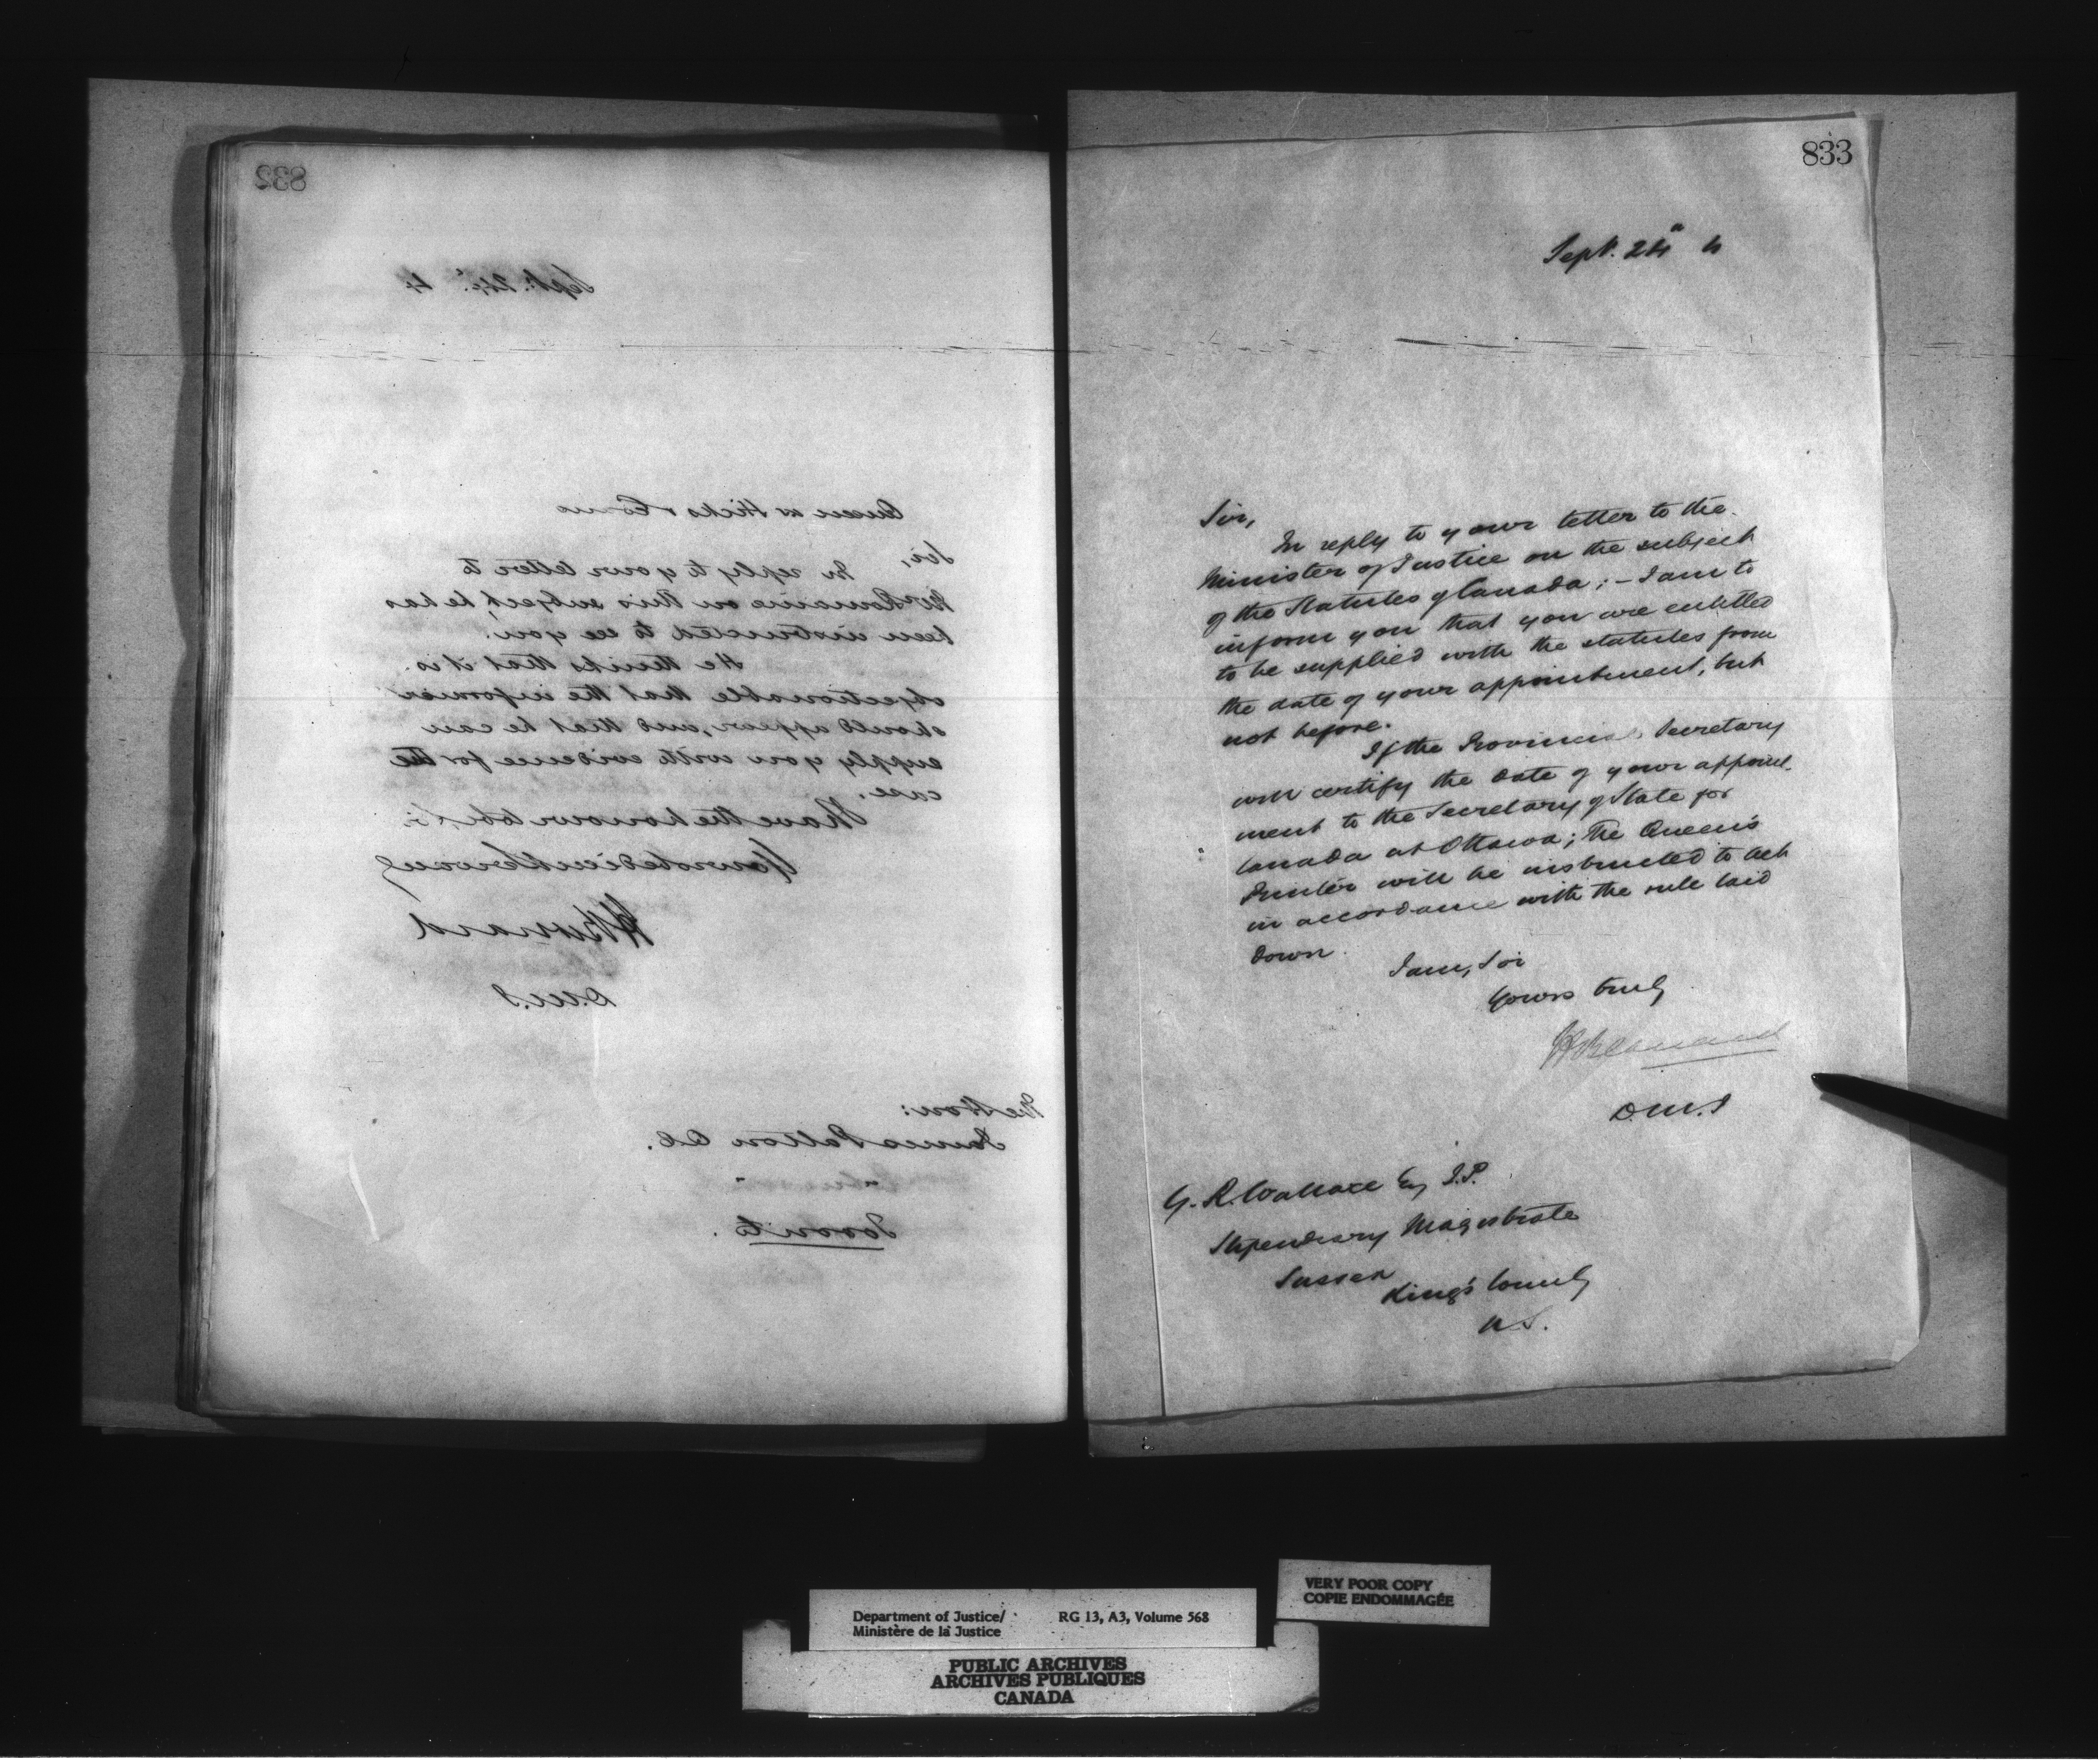 832
Sept. 24. 4
Queen vs Hicks & Evans
Sir,
In reply to your letter to
Mr Romaine on this subject, he has
been instructed to see you.
He thinks that it is
objectionable that the informer
should appear, and that he can
supply you with evidence for the
case.
I have the honour to be, Sir
Your obedient Servant
H Bernard
D.M.J
The Hon:
James Patton Q.C.
Toronto.
833
Sept. 24 4
Sir,
In reply to your letter to the
Minister of Justice on the subject
of the Statutes of Canada; – I am to
inform you that you are entitled
to be supplied with the statutes from
the date of your appointment, but
not before.
If the Provincial Secretary
will certify the date of your appoint-
ment to the Secretary of State for
Canada at Ottawa; the Queen's
Printer will be instructed to act
in accordance with the rule laid
down.
I am, Sir
Yours truly
H Bernard
D.M.J
G. R. Wallace Esq J.P.
Stipendiary Magistrate
Sussex
King's County
N.S.
Department of Justice/ RG 13, A3, Volume 568
Ministère de la Justice
VERY POOR COPY
COPIE ENDOMMAGÉE
PUBLIC ARCHIVES
ARCHIVES PUBLIQUES
CANADA